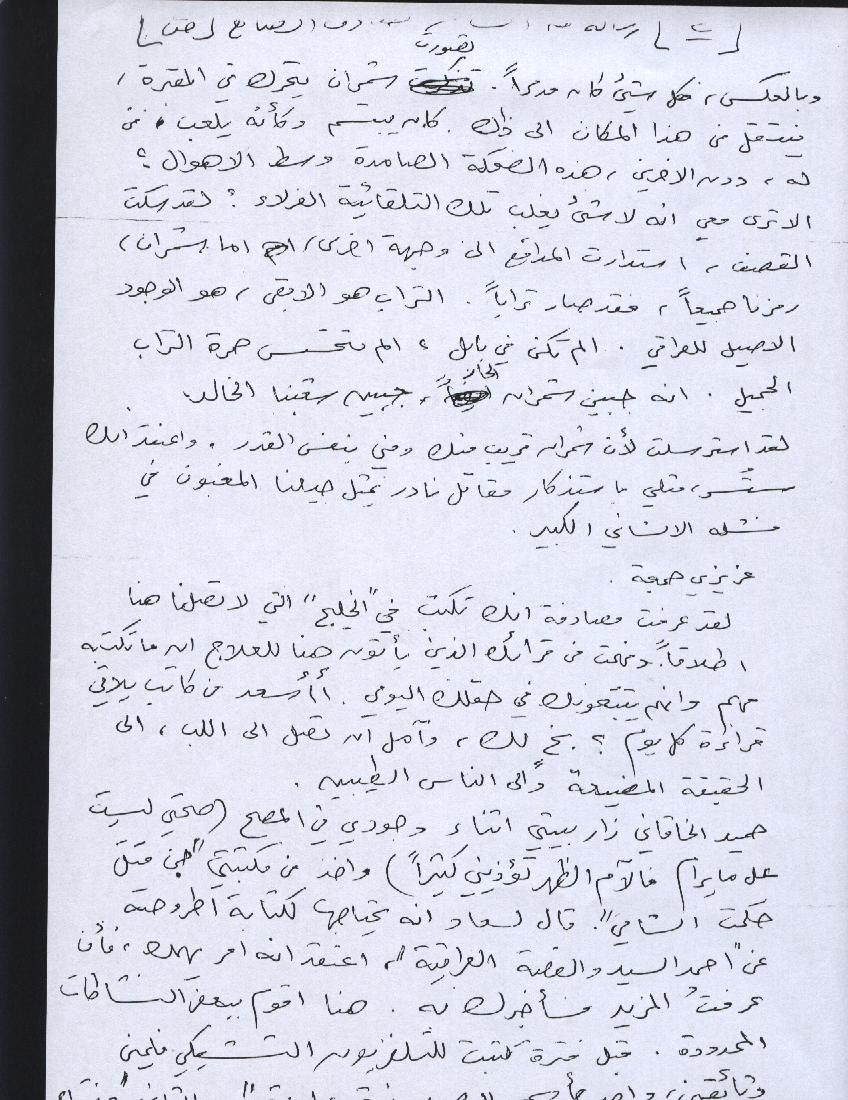 تصورت
وبالعكس، فكل شيئ كان مدمراً. شمران يتحرك في المقبرة،
فينتقل من هذا المكان الى ذلك. كان يبتسم وكأنه يلعب، فمن
له، دون الآخرين، هذه الضحكة الصامدة وسط الاهوال؟
الا ترى معي انه لا شيئ يغلب تلك التلقائية الغراء؟ لقد سكت
القصف، استدارت المدافع الى وجهة اخرى، اما شمران،
رمزنا جميعاً، فقد صار تراباً. التراب هو الابقى، هو الوجود
الاصيل للعراقي. الم تكن في بابل؟ الم تتحسس حمرة التراب
الجميل. انه جبين شمران، جبين شعبنا الخالد.
لقد استرسلت لأن شمران قريب منك ومني بنفس القدر. واعتقد انك
ستُسر، مثلي باستذكار مقاتل نادر يمثل جيلنا المغبون في
فشله الانساني الكبير.
عزيزي جمعة.
لقد عرفت مصادفة انك تكتب في "الخليج" التي لا تصلنا هنا
اطلاقاً. وفهمت من قرائك الذين يأتون هنا للعلاج ان ما تكتبه
مهم وانهم يتتبعونك في حقلك اليومي. أأسعد من كاتب يلاقي
قراءه كل يوم؟ بخ لك، وآمل ان تصل الى اللب، الى
الحقيقة المضيعة والى الناس الطيبين.
حميد الخاقاني زار بيتي اثناء وجودي في المصح (صحتي ليست
على ما يرام فآلام الظهر تؤذيني كثيراً) واخذ من مكتبتي "من قتل
حكمت الشامي". قال لسعاد انه يحتاجها لكتابة اطروحته
عن "احمد السيد والقصة العراقية". اعتقد انه امر يهمك، فأن
عرفتُ المزيد فسأخبرك به. هنا اقوم ببعض النشاطات
المحدودة. قبل فترة كتبت للتلفزيون التشيكي فلمين
وثائقيين،